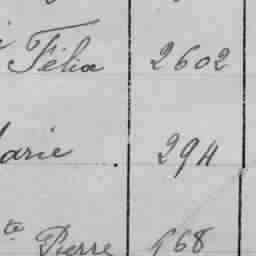 Félix 2602
Marie . 294
te Pierre 568